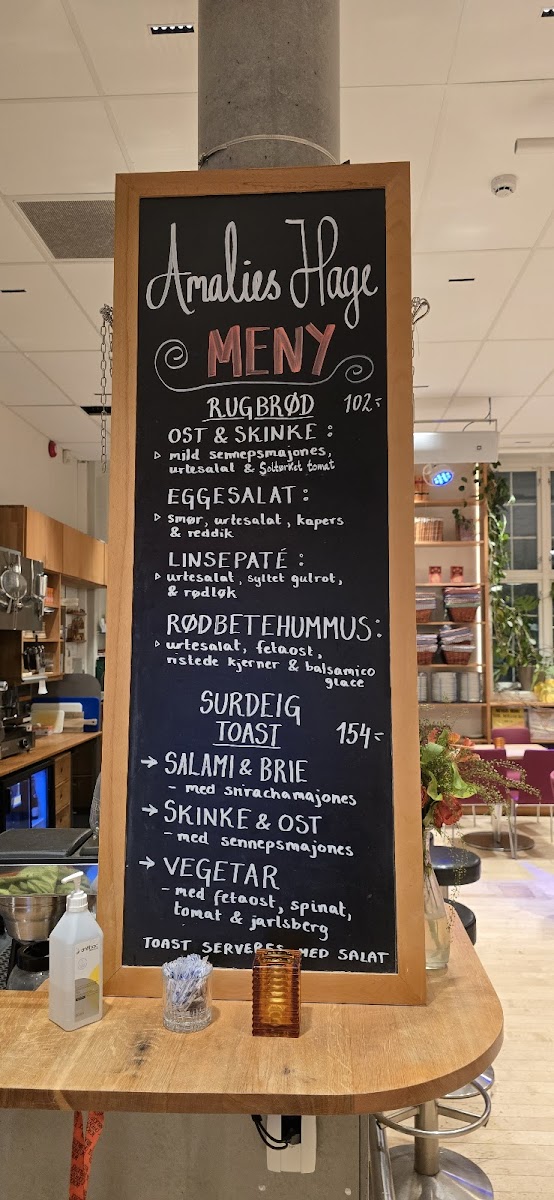 Amalies Hage
MENY
RUGBRØD 102,-
OST & SKINKE :
▹ mild sennepsmajones,
urtesalat & Soltørket tomat
EGGESALAT :
▹ smør, urtesalat, kapers
& reddik
LINSEPATÉ :
▹ urtesalat, syltet gulrot,
& rødløk
RØDBETEHUMMUS:
▹ urtesalat, fetaost,
ristede kjerner & balsamico
glace
SURDEIG
TOAST 154,-
→ SALAMI & BRIE
- med srirachamajones
→ SKINKE & OST
- med sennepsmajones
→ VEGETAR
- med fetaost, spinat,
tomat & jarlsberg
TOAST SERVERES MED SALAT